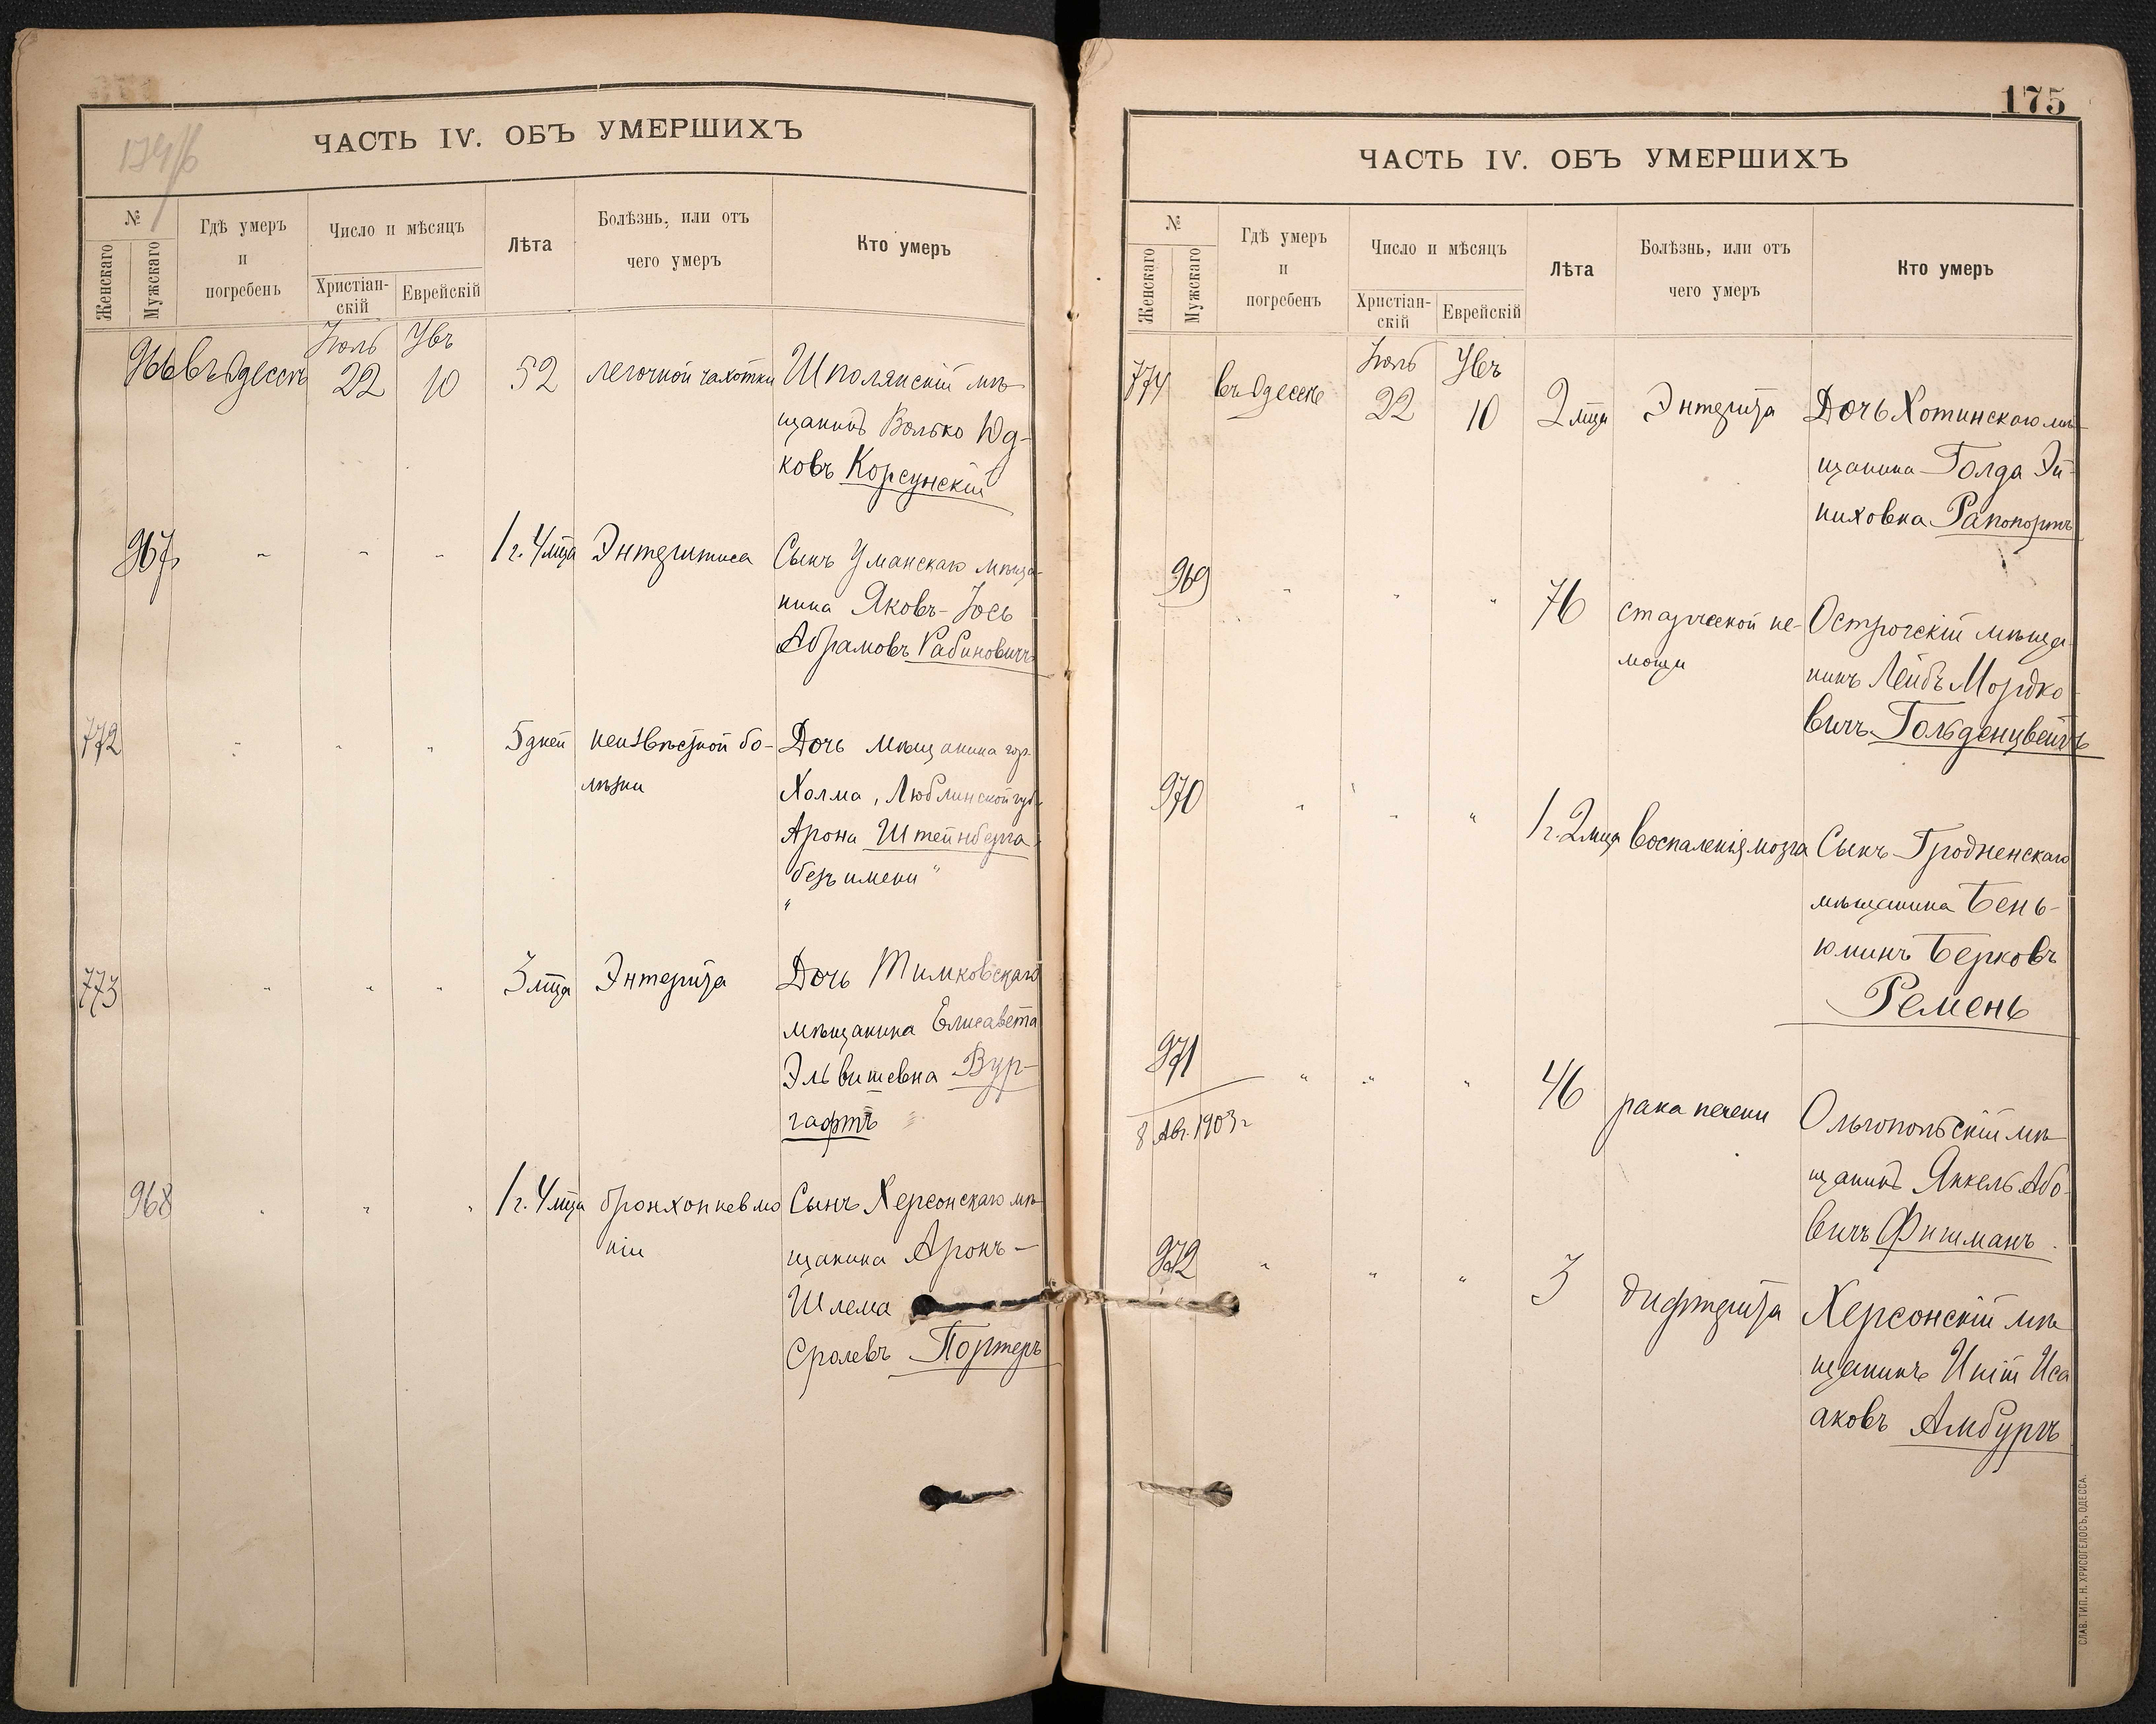 ЧАСТЬ IV. ОБЪ УМЕРШИХЪ
№
Женскаго
Мужскаго
Гдѣ умеръ
и
погребенъ
Число и мѣсяцъ
Христіан-
скій
Еврейскій
Лѣта
Болѣзнь, или отъ
чего умеръ
Кто умеръ
Іюль
966 въ Одессѣ 22 10 52 легочной чахотки Шполянскій мѣ-
щанинъ Волько Юд-
ковъ Корсунскій
967 " " " 1 г. 4 мѣца Энтеритиса Сынъ Уманскаго мѣща-
нина Яковъ-Іось
Абрамовъ Рабиновичъ
772 " " " 5 дней неизвѣстной бо- Дочь мѣщанина гор.
лѣзни Холма, Люблинской губ.
Арона Штейнберга
"безъ имени"
773 " " " 3 мѣца Энтерита Дочь Тимковскаго
мѣщанина Елисавета
Вур-
гафтъ
968 " " " 1 г. 4 мѣца бронхопневмо Сынъ Херсонскаго мѣ-
ніи щанина Аронъ-
Шлема
Сролевъ Портеръ
175
ЧАСТЬ IV. ОБЪ УМЕРШИХЪ
№
Женскаго
Мужскаго
Гдѣ умеръ
и
погребенъ
Число и мѣсяцъ
Христіан-
скій
Еврейскій
Лѣта
Болѣзнь, или отъ
чего умеръ
Кто умеръ
Іюль
774 въ Одессѣ 22 10 2 мѣца Энтерита Дочь Хотинскаго мѣ-
щанина Голда Эй-
ниховна Рапопортъ
969 " " " 76 старческой не- Острогскій мѣща-
мощи нинъ Лейбъ Мордко-
вичъ Гольденцвейгъ
970 " " " 1 г. 2 мѣца воспаленія мозга Сынъ Гродненскаго
мѣщанина Бень-
юминъ Берковъ
Ремень
971 " " " 46 рака печени Ольгопольскій мѣ-
8 Авг. 1903 г
щанинъ Янкель Або-
вичъ Фишманъ
972 " " " 3 дифтерита Херсонскій мѣ-
щанинъ Иса
аковъ Амбургъ
СЛАВ. ТИП. Н. ХРИСОГЕЛОСЪ, ОДЕССА.